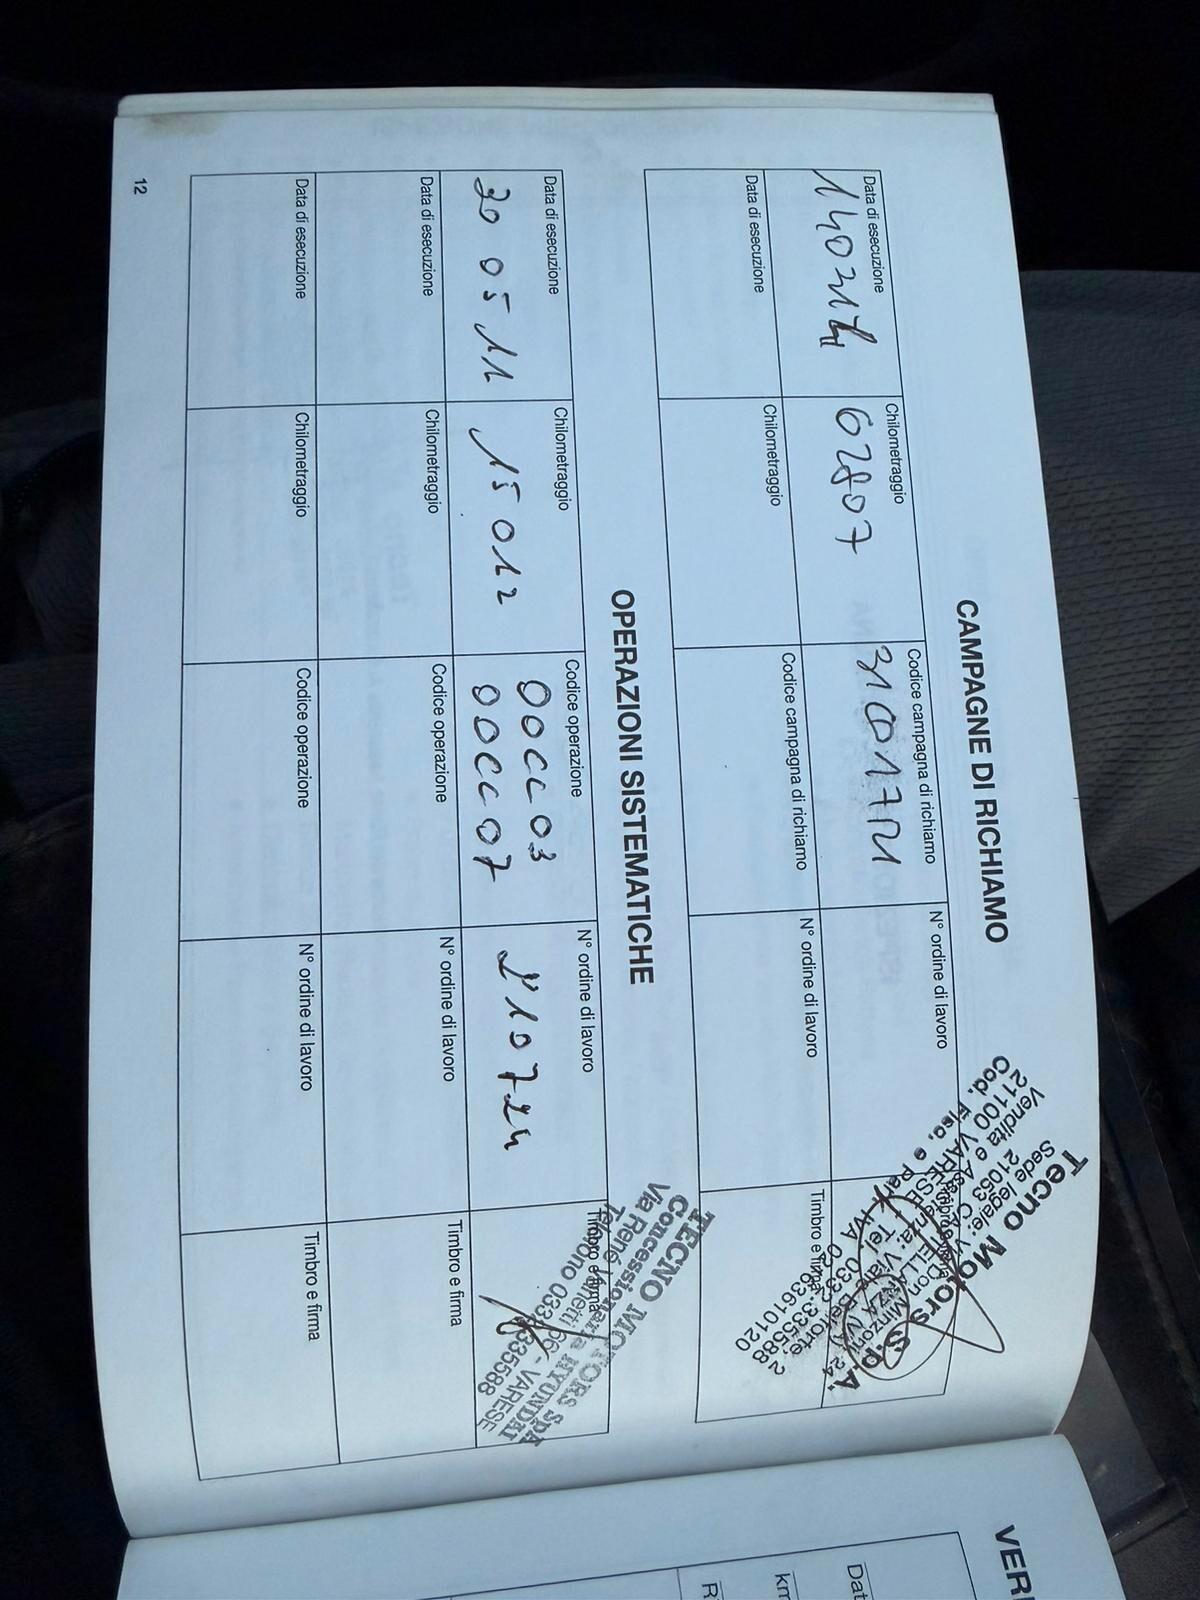 CAMPAGNE DI RICHIAMO
Data di esecuzione Chilometraggio Codice campagna di richiamo N° ordine di lavoro Timbro e firma
62807
Tecno Motors S.p.A.
Sede legale: Via Don Minzoni, 24
21053 CASTELLANZA (VA)
Vendita e Assistenza: Viale Belforte,
21100 VARESE - Tel. 0332.335588
Cod. Fisc. e Part. IVA
Data di esecuzione Chilometraggio Codice campagna di richiamo N° ordine di lavoro Timbro e firma
OPERAZIONI SISTEMATICHE
Data di esecuzione Chilometraggio Codice operazione N° ordine di lavoro Timbro e firma
30 05 11 15012 00CC03
00CC07
TECNO MOTORS SPA
Concessionaria HYUNDAI
Via René Vanetti, 66 - VARESE
Telefono 0332 335588
Data di esecuzione Chilometraggio Codice operazione N° ordine di lavoro Timbro e firma
Data di esecuzione Chilometraggio Codice operazione N° ordine di lavoro Timbro e firma
12
VERI
Dat
km
R